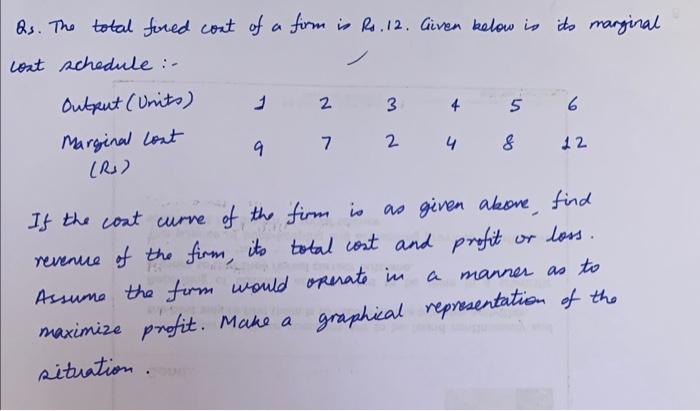 Q3. The total fixed cost of a firm is Rs.12. Given below is its marginal
cost schedule :-
Output (Units) 1 2 3 4 5 6
Marginal Cost 9 7 2 4 8 12
(Rs)
If the cost curve of the firm is as given above, find
revenue of the firm, its total cost and profit or loss.
Assume the firm would operate in a manner as to
maximize profit. Make a graphical representation of the
situation.